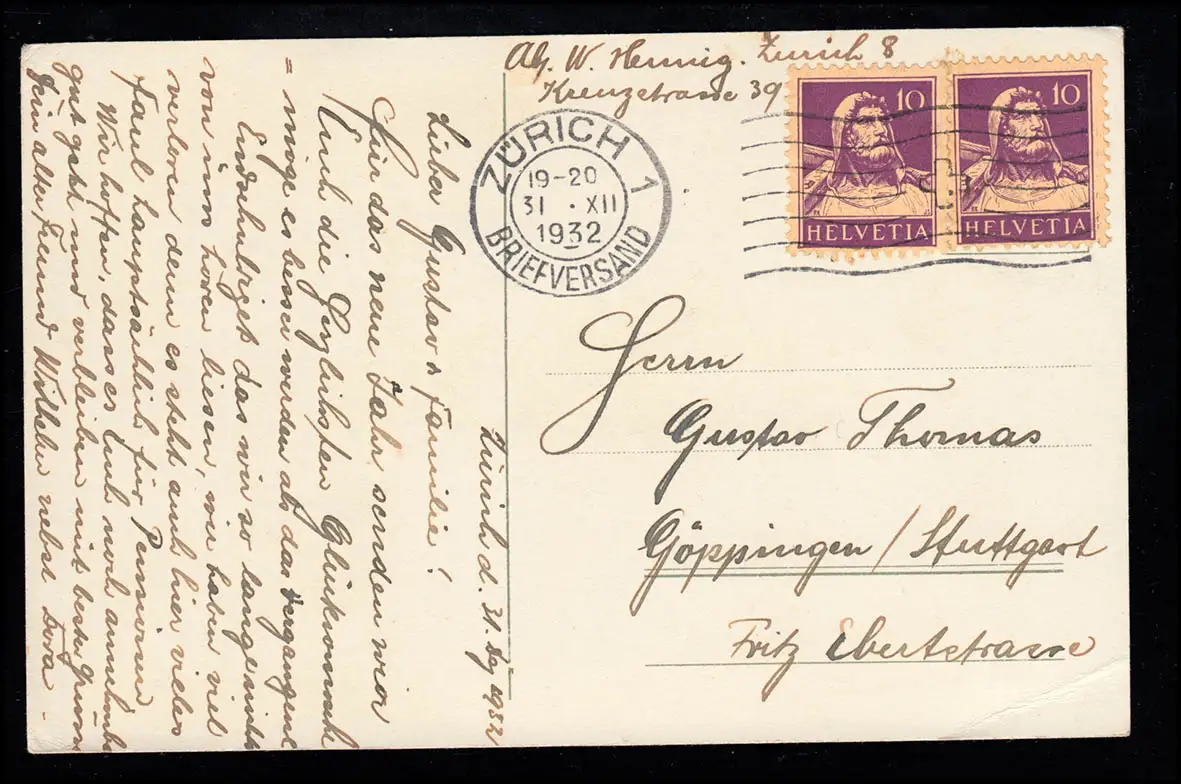 Abs. W. Hennig. Zürich 8
Kreuzstrasse 39
ZÜRICH 1
19-20
31 · XII
1932
BRIEFVERSAND
10
HELVETIA
10
HELVETIA
Herrn
Gustav Thomas
Göppingen / Stuttgart
Fritz Ebertstrasse
Zürich d. 31. 1932
Lieber Gustav & Familie!
Für das neue Jahr senden wir
Euch die Herzlichsten Glückwünsche
= möge es besser werden als das vergangene
Endschuldiget das wir so lange nichts
von uns hören liesen, wir haben viel
verloren denn es steht auch hier vieles
faul hauptsächlich für
Wir hoffen, dass es Euch noch
gut geht und verbleiben mit besten Grüssen
Dein alter Freund Wilhelm nebst Dora -